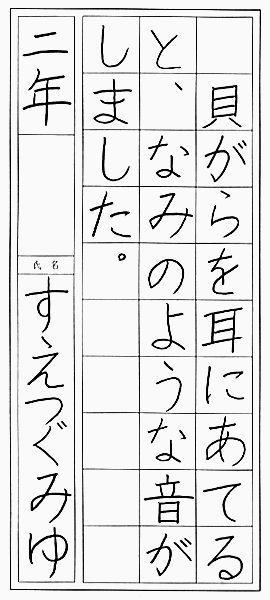 貝がらを耳にあてる
と、なみのような音が
しました。
二年
氏名
すえつぐみゆ